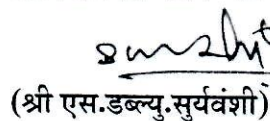 (श्री एस.डब्ल्यु.सुर्यवंशी)